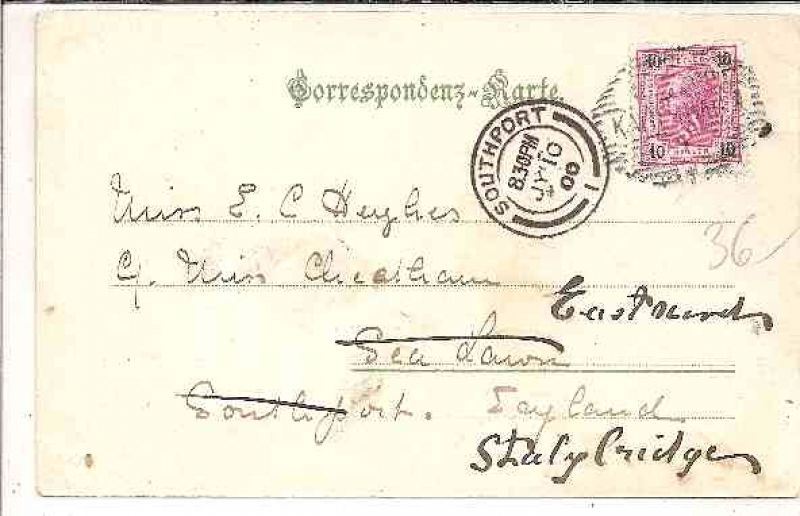 Correspondenz-Karte.
10 10
10 HELLER 10
K
SOUTHPORT
8.30PM
JY 10
00
1
Miss E. C Hughes
c/. Miss Cheetham
36
Eastwoods
Sea Lawn
Southport. England
Stalybridge